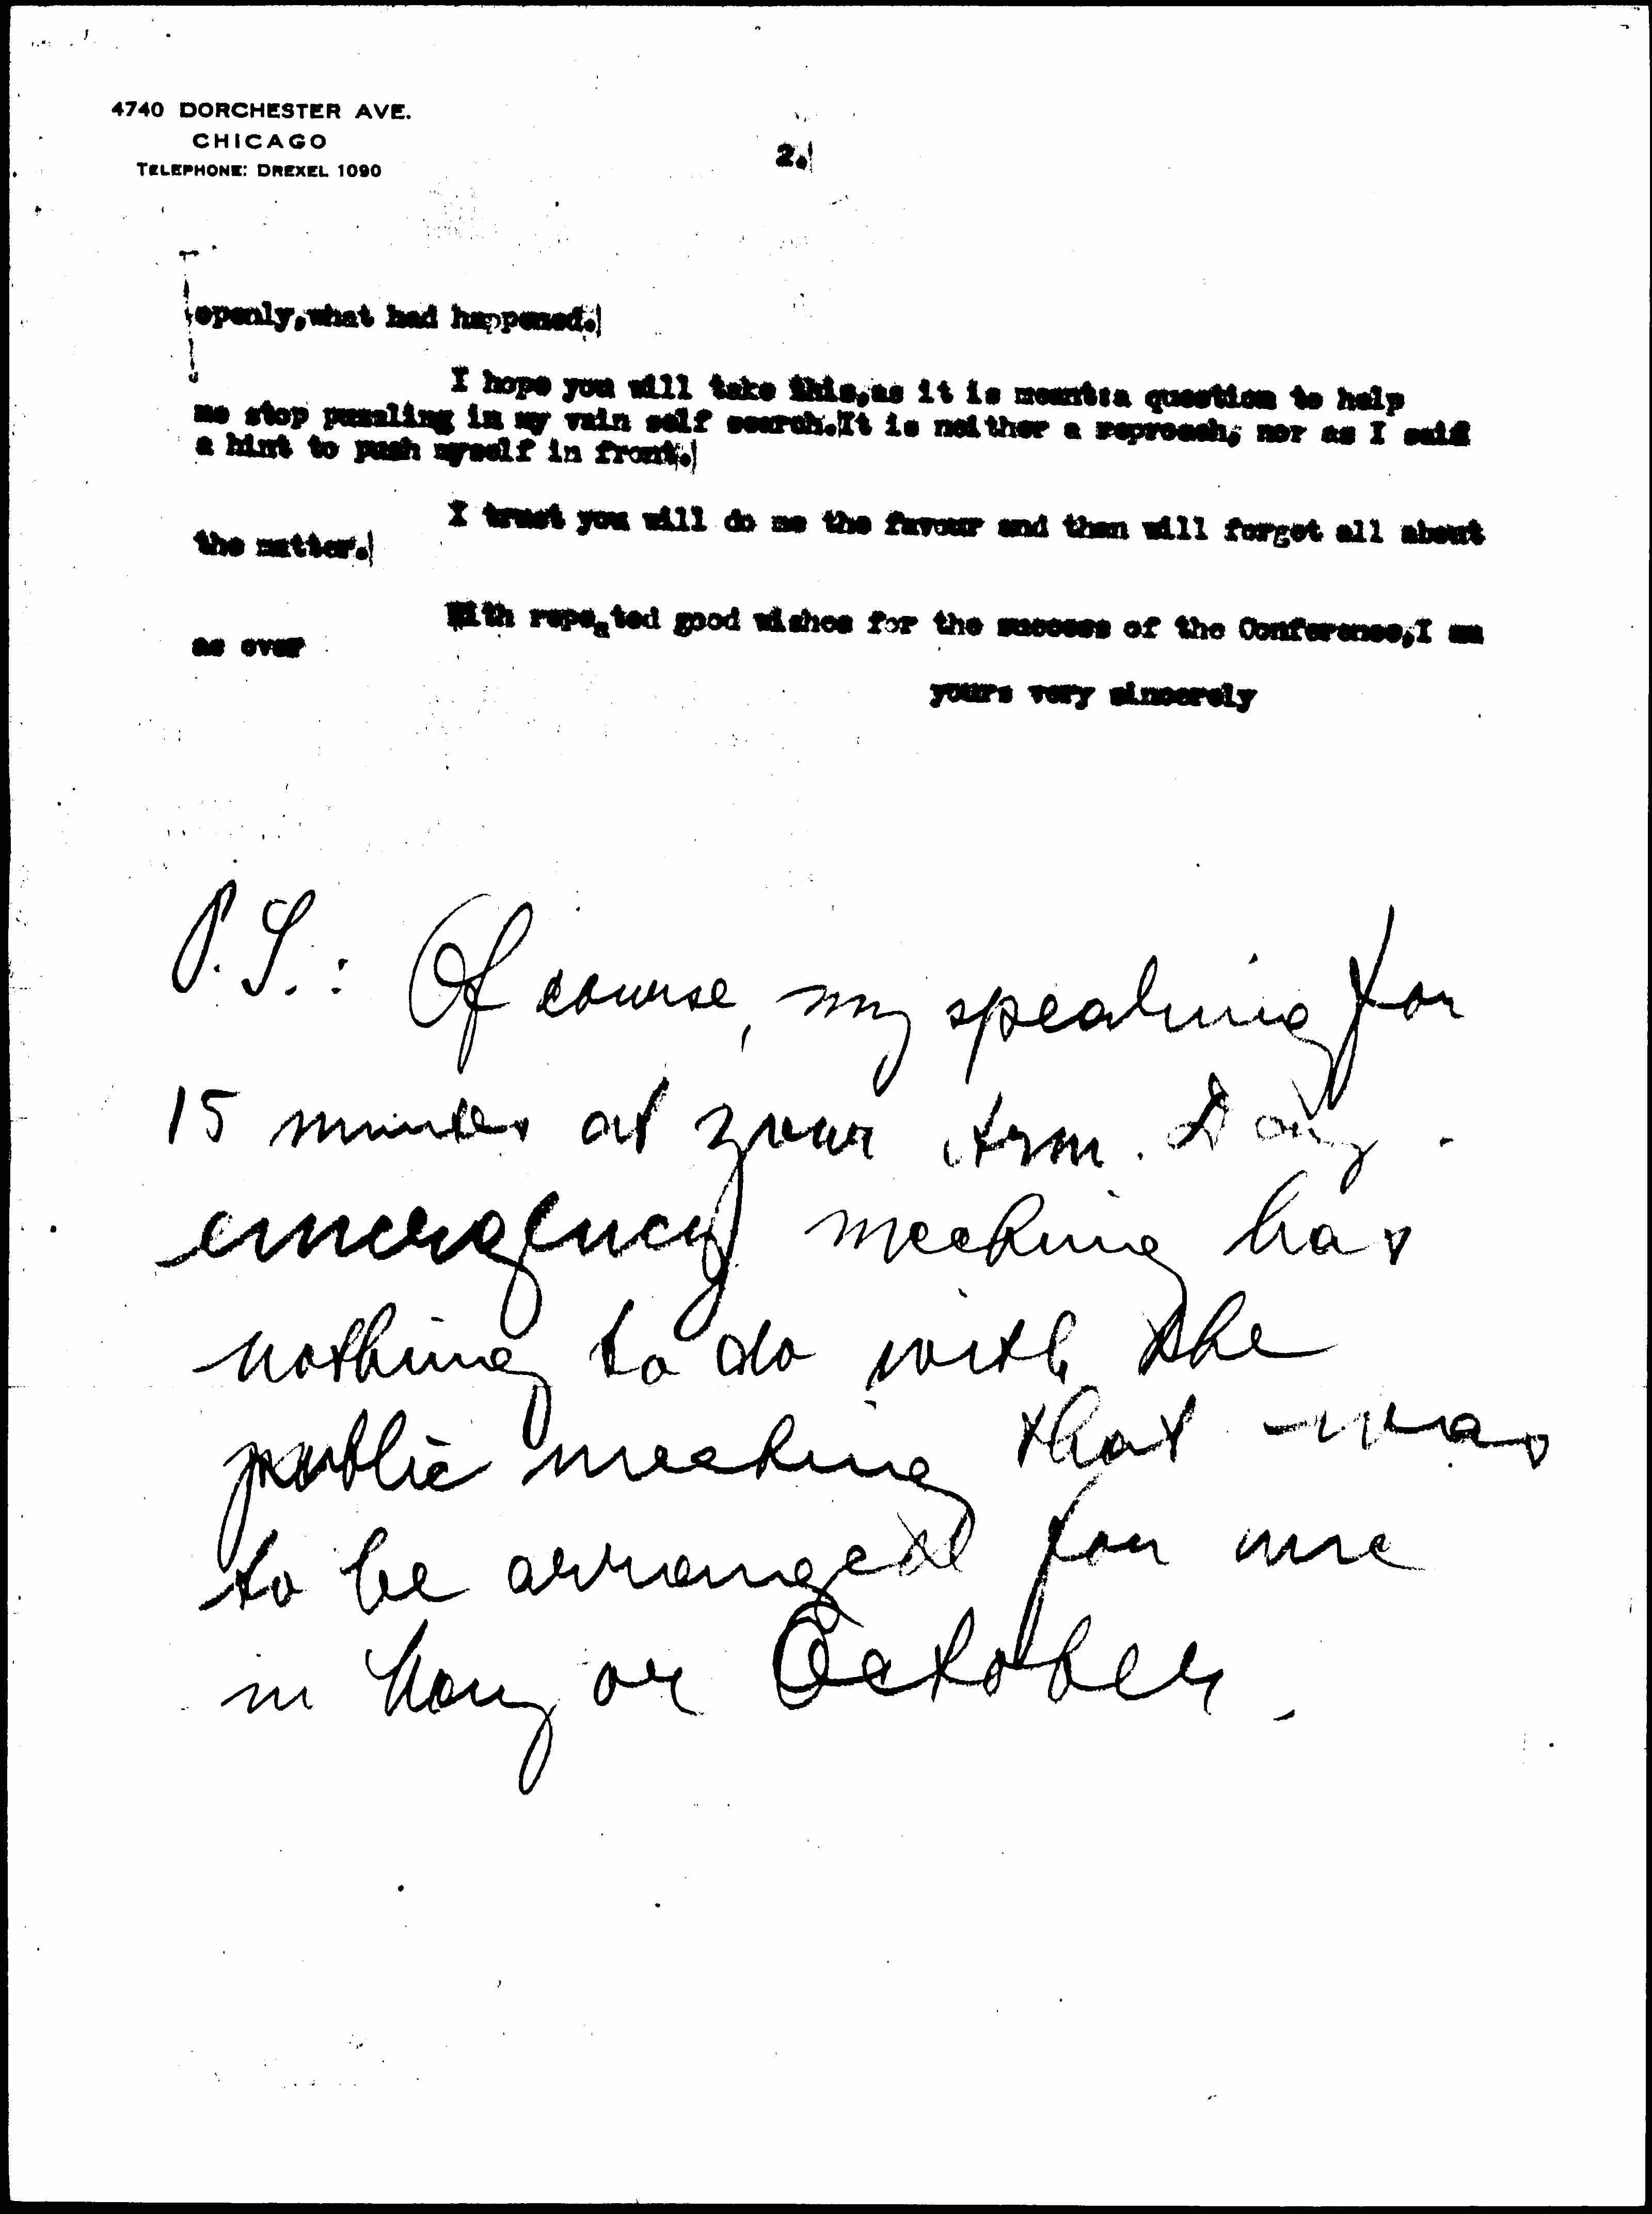 4740 DORCHESTER AVE.
CHICAGO
TELEPHONE: DREXEL 1090
2.
openly,what had happened.
I hope you will take this,as it is meant:a question to help
me stop puzzling in my vain self search.It is neither a reproach, nor as I said
a hint to push myself in front.
I trust you will do me the favour and then will forget all about
the matter.
With repeated good wishes for the success of the Conference,I am
as ever
yours very sincerely
P.S.: Of course, my speaking for
15 minutes at your Arm. Day
emergency meeting has
nothing to do with the
public meeting that was
to be arranged for me
in May or October.